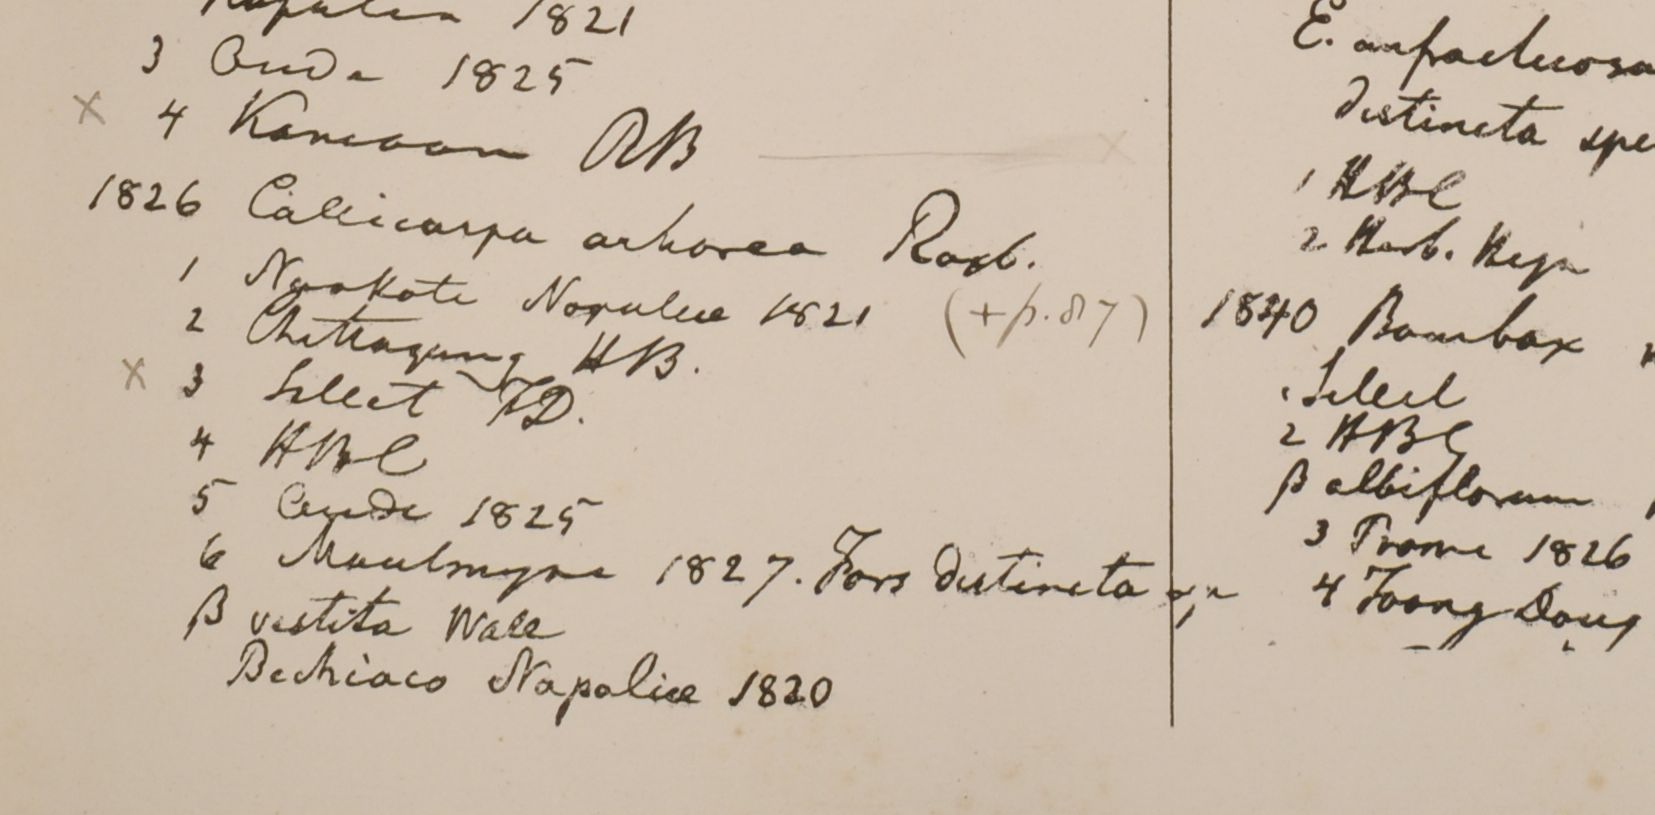 Napalia 1821
3 Oude 1825
x 4 Kamaoon RB x
1826 Callicarpa arborea Roxb.
1 Noakote Napaliæ 1821 (+p.87)
2 Chittagong HB.
x 3 Sillet FD.
4 HBC
5 Oude 1825
6 Moulmyne 1827. Fors distincta sp.
β vestita Wall
Bechiaco Napaliæ 1820
E. anfractuosa
distincta spe
1 HBC
2 Herb. Heyn
1840 Bombax
1 Sillet
2 HBC
β albiflorum
3 Prome 1826
4 Toong Dong